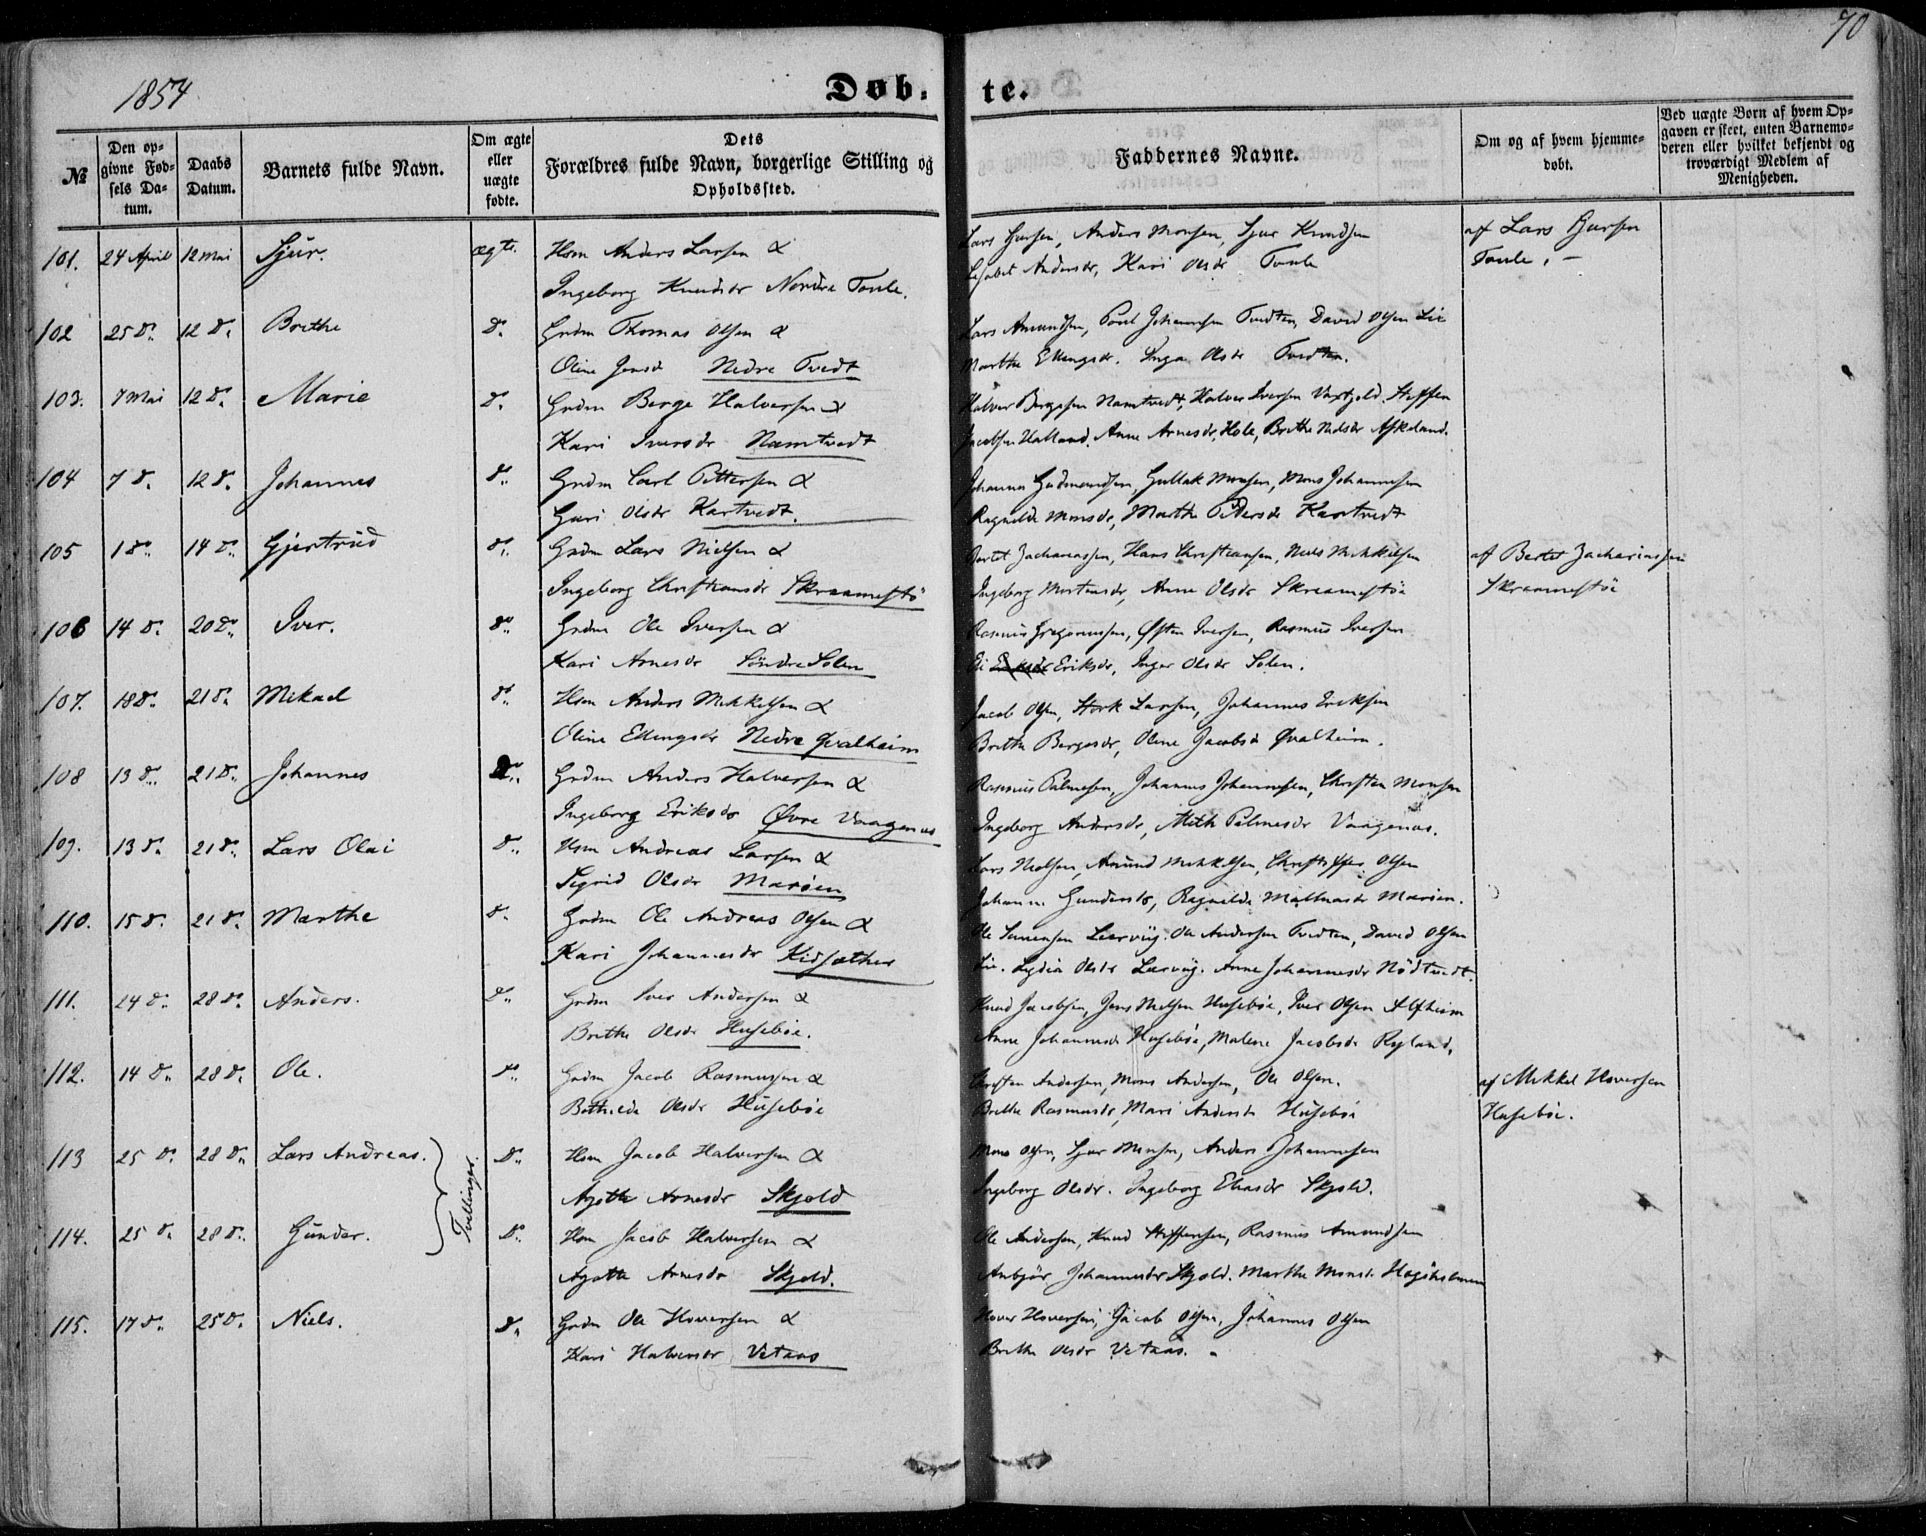 70
1854
Døb-
te.
№
Den op-
givne Fød-
sels Da-
tum.
Daabs
Datum.
Barnets fulde Navn.
Om ægte
eller
uægte
fødte.
Dets
Forældres fulde Navn, borgerlige Stilling og
Opholdssted.
Faddernes Navne.
Om og af hvem hjemme-
døbt.
Ved uægte Børn af hvem Op-
gaven er skeet, enten Barnemo-
deren eller hvilket bekjendt og
troværdigt Medlem af
Menigheden.
101. 24 April 12 Mai Sjur. ægte. Hsm Anders Larsen & Anders Monsen, Sjur Knudsen af Lars
Ingeborg Knudsdr Nordre Tonle. Andersdr, Kari Olsdr Tonle Tonle. -
102 25 d. 12 d. Brithe d. Grdm Thomas Olsen & Lars Amundsen, Poul Johannesen Tvedten, David Olsen Lie
Oline Jensd Nedre Tvedt Marthe Ellingsdr. Inga Olsdr Tvedten.
103. 7 Mai 12 d. Marie d. Grdm Berge Halversen & Halver Bergesen Namtvedt, Halver Iversen Steffen
Kari Iversdr Namtvedt Jacobsen Halland. Anne Arnesdr, Hole, Brithe Nielsdr Askeland.
104 7 d. 12 d. Johannes d. Grdm Carl Pettersen & Johannes Gudmundsen, Gullak Monsen, Mons Johannesen
Guri Olsdr Kartvedt. Ragnilde Monsdr, Marthe Pedersdr Kartvedt
105 1 d. 14 d. Gjertrud d. Grdm Lars Nielsen & Bertel Zachariassen, Hans Christiansen, Niels Mikkelsen af Bertel Zachariassen
Ingeborg Christiansdr Skraamestø Ingeborg Mortensdr, Anne Olsdr Skraamestøe Skraamestøe
106 14 d. 20 d. Iver. d. Grdm Ole Iversen & Rasmus Gregoriussen, Østen Iversen, Rasmus Iversen
Kari Arnesdr Søndre Solem Eriksdr, Inger Olsdr Solem.
107. 18 d. 21 d. Mikael d. Hsm Anders Mikkelsen & Jacob Olsen, Stork Larsen, Johannes Eriksen
Oline Ellingsdr Nedre Qvalheim Brithe Bergesdr, Oline Jacobsd Qvalheim.
108 13 d. 21 d. Johannes d. Grdm Anders Halversen & Rasmus Palmesen, Johannes Johannesen, Christen Monsen
Ingeborg Eriksdr Øvre Vaagenæs Ingeborg Andersdr, Palmesdr Vaagenæs.
109. 13 d. 21 d. Lars Olai d. Hsm Andreas Larsen & Lars Nielsen, Amund Mikkelsen, Christoffer Olsen
Sigrid Olsdr Marøen Johanne Gundersdr, Ragnilde Marøen.
110. 15 d. 21 d. Marthe d. Grdm Ole Andreas Olsen & Ole Leervüg. Ole Andersen Tvedten, David Olsen
Kari Johannesdr Kidsæther Lie. Lydia Olsdr Leervüg. Anne Johannesdr Nødtvedt.
111. 24 d. 28 d. Anders. d. Grdm Iver Andersen & Knud Jacobsen, Jens Nielsen Husebøe, Iver Olsen Alfheim
Brithe Olsdr Husebøe. Anne Johannesdr Husebøe, Malene Jacobsdr Ryland.
112. 14 d. 28 d. Ole. d. Grdm Jacob Rasmussen & Christen Andersen, Mons Andersen, Ole Olsen. af Mikkel Hoversen
Bothilde Olsdr Husebøe Brithe Rasmusdr, Mari Andersdr Husebøe Husebøe.
113 25 d. 28 d. Lars Andreas. Tvillinger. d. Hsm Jacob Halversen & Mons Olsen, Sjur Monsen, Anders Johannesen
Agathe Arnesdr Skjold Ingeborg Olsdr. Ingeborg Eliasdr Skjold.
114. 25 d. 28 d. Gunder. d. Hsm Jacob Halversen & Ole Andersen, Knud Steffensen, Rasmus Amundsen
Agathe Arnesdr Skjold. Anbjør Johannesdr Skjold. Marthe Monsdr
115. 17 d. 25 d. Niels. d. Grdm Ole Hoversen & Hover Hoversen, Jacob Olsen, Johannes Olsen
Kari Halversdr Vetaas Brithe Olsdr Vetaas.